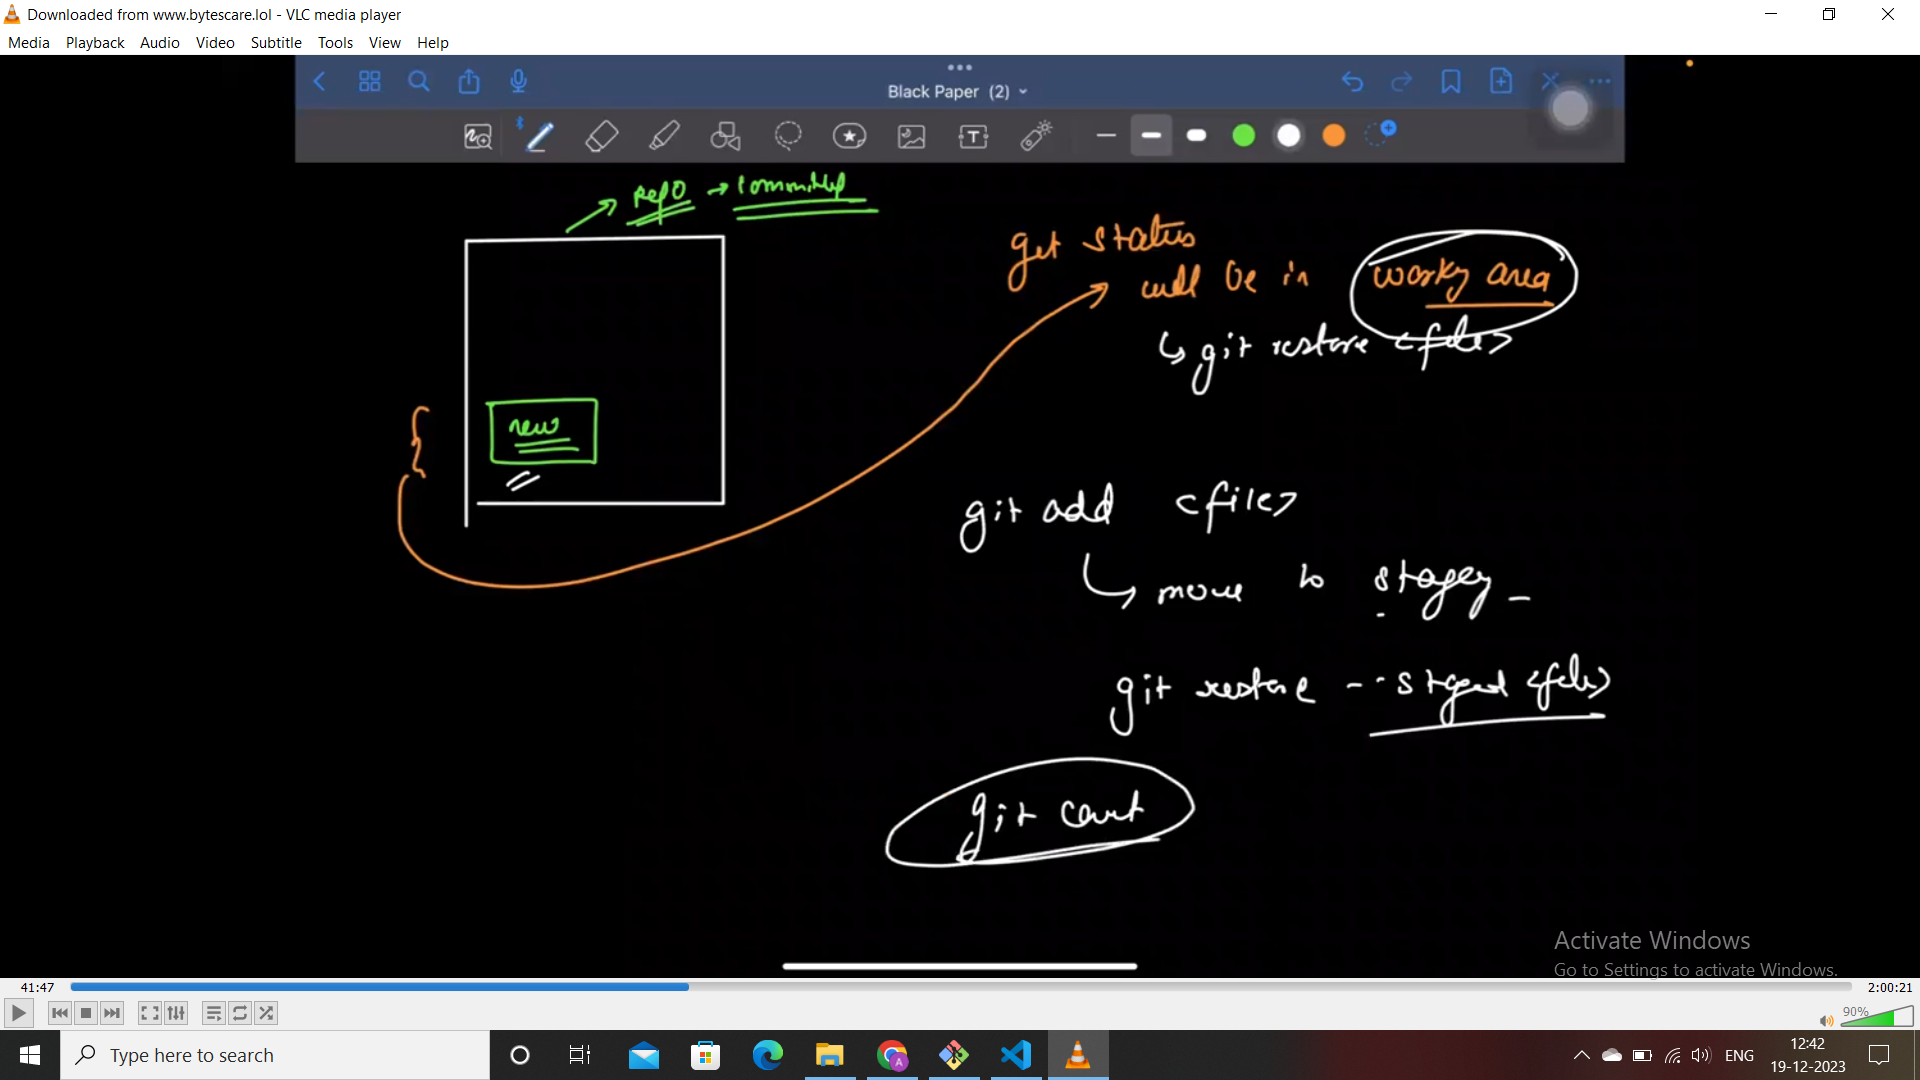 Downloaded from www.bytescare.lol - VLC media player
Media Playback Audio Video Subtitle Tools View Help
Black Paper (2)
T
repo → committed
get status
will be in
git restore <file>
new
git add <file>
move to
git restore --staged <file>
git
Activate Windows
Go to Settings to activate Windows.
41:47
2:00:21
90%
Type here to search
A
ENG
12:42
19-12-2023